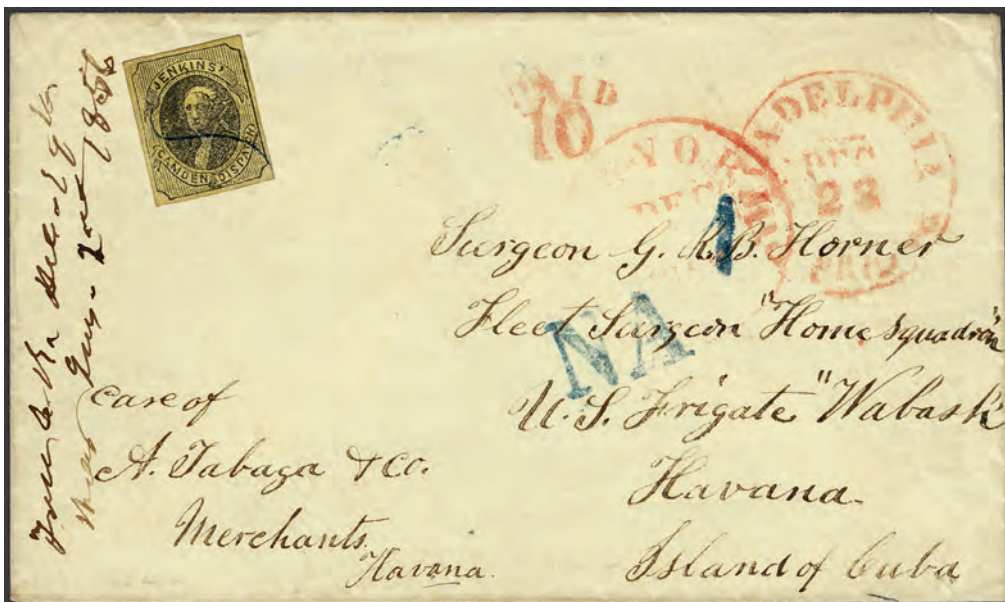 JENKINS'
CAMDEN DISPATCH
PAID
10
ADELPHIA
DEC
23
N
DEC
1
NA
Surgeon G. R. B. Horner
Fleet Surgeon "Home Squadron"
U. S. Frigate "Wabash
Havana
Island of Cuba
Care of
A. Tabaga & Co.
Merchants
Havana.
1856